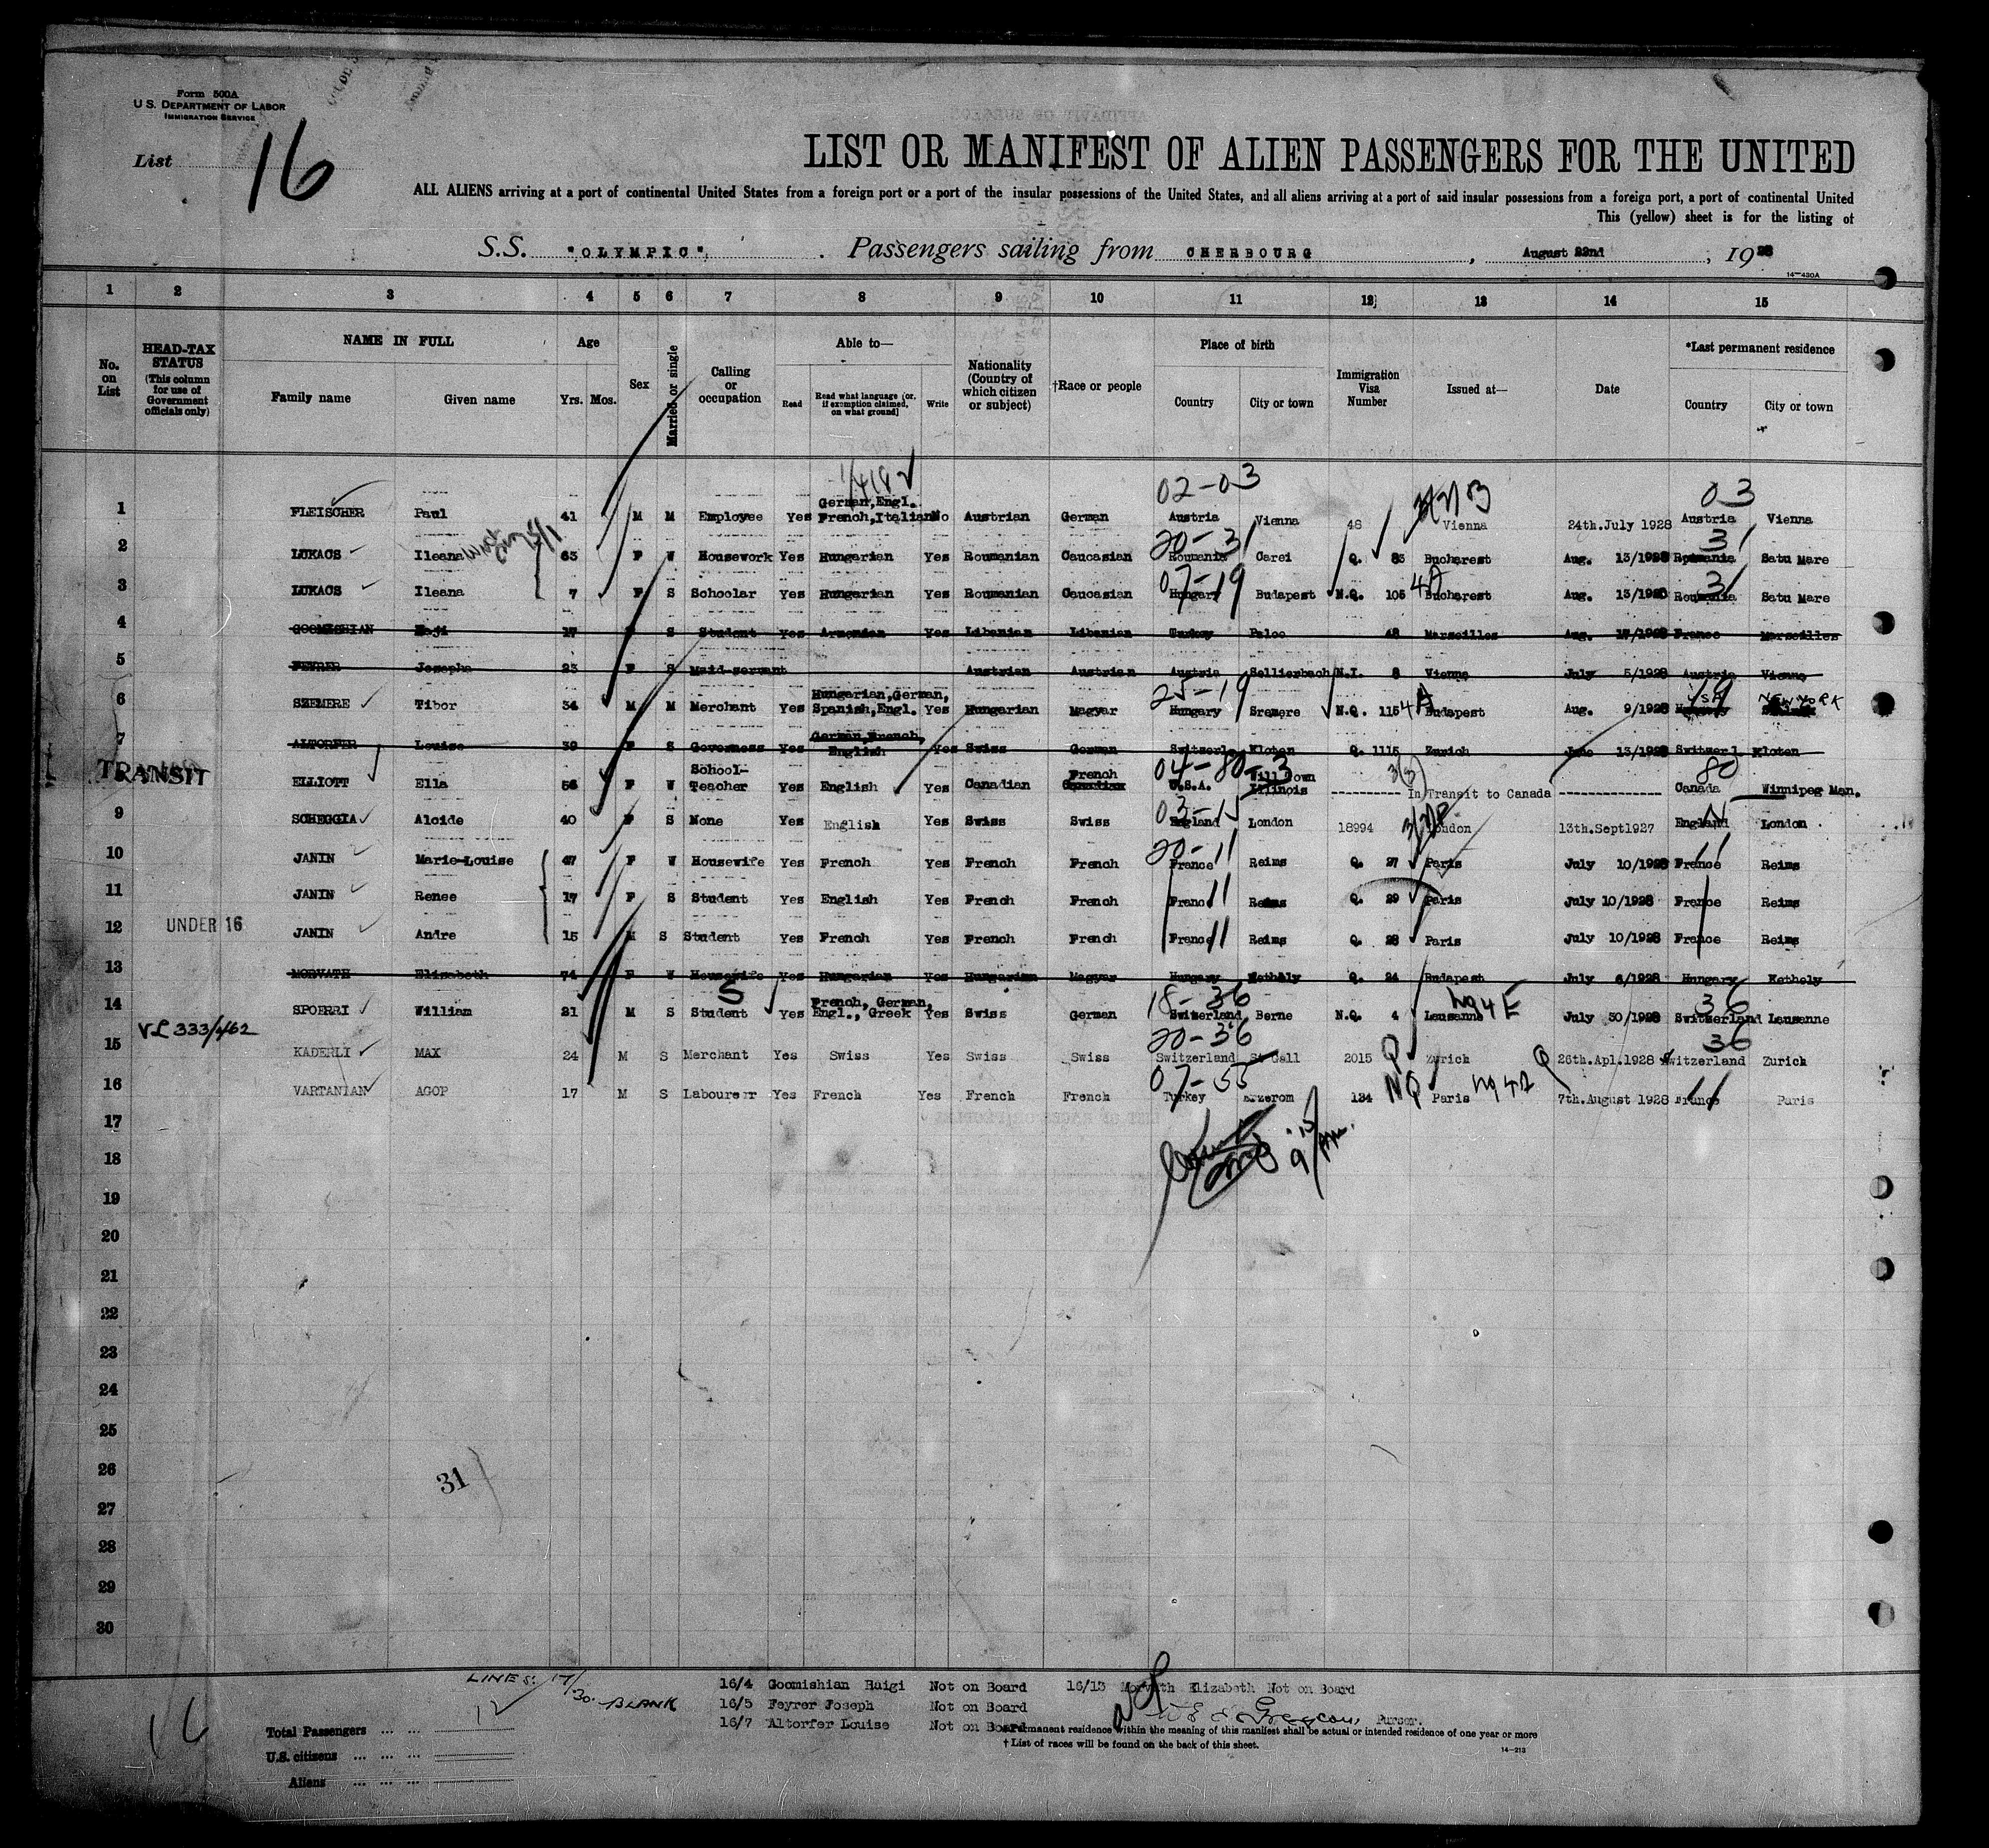 Form 500A
U.S. DEPARTMENT OF LABOR
IMMIGRATION SERVICE
List 16
LIST OR MANIFEST OF ALIEN PASSENGERS FOR THE UNITED
ALL ALIENS arriving at a port of continental United States from a foreign port or a port of the insular possessions of the United States, and all aliens arriving at a port of said insular possessions from a foreign port, a port of continental United
This (yellow) sheet is for the listing of
S.S. "OLYMPIC", Passengers sailing from CHERBOURG, August 22nd, 1928
14-430A
1 2 3 4 5 6 7 8 9 10 11 12 13 14 15
No. on List
HEAD-TAX STATUS (This column for use of Government officials only)
NAME IN FULL
Family name Given name
Age
Yrs. Mos.
Sex
Married or single
Calling or occupation
Able to—
Read Read what language (or, if exemption claimed, on what ground) Write
Nationality (Country of which citizen or subject)
†Race or people
Place of birth
Country City or town
Immigration Visa Number
Issued at—
Date
*Last permanent residence
Country City or town
02-03 03
1 FLEISCHER Paul 41 M M Employee Yes German, Engl. French, Italian No Austrian German Austria Vienna 48 Vienna 24th.July 1928 Austria Vienna
20-31 31
2 LUKACS Ileana 63 F W Housework Yes Hungarian Yes Roumanian Caucasian Roumania Carei Q. 83 Bucharest Aug. 13/1928 Roumania Satu Mare
07-19 31
3 LUKACS Ileana 7 F S Schoolar Yes Hungarian Yes Roumanian Caucasian Hungary Budapest N.Q. 105 4A Bucharest Aug. 13/1928 Roumania Satu Mare
4 GOOMISHIAN 17 S Student Yes Armenian Yes Libanian Libanian Turkey Paloo 48 Marseilles Aug. 17/1928 France Marseilles
5 FEYRER Josepha 23 F S Maid-servant Austrian Austrian Austria Sollierbach N.I. 8 Vienna July 5/1928 Austria Vienna
25-19 19
6 SZEMERE Tibor 34 M M Merchant Yes Hungarian, German, Spanish, Engl. Yes Hungarian Magyar Hungary Sremere N.Q. 115 4A Budapest Aug. 9/1928 USA NEW YORK
7 ALTORFER Louise 39 F S Governess Yes German, French, English Yes Swiss German Switzerl. Kloten Q. 1115 Zurich June 13/1928 Switzerl. Kloten
04-80-3 80
TRANSIT ELLIOTT Ella 56 F W School-Teacher Yes English Yes Canadian French Canadian U.S.A. Illinois In Transit to Canada Canada Winnipeg Man.
03-15
9 SCHEGGIA Alcide 40 F S None Yes English Yes Swiss Swiss England London 18994 London 13th.Sept1927 England London
20-11 11
10 JANIN Marie-Louise 47 F W Housewife Yes French Yes French French France Reims Q. 27 Paris July 10/1928 France Reims
11 JANIN Renee 17 F S Student Yes English Yes French French France Reims Q. 29 Paris July 10/1928 France Reims
UNDER 16
12 JANIN Andre 15 M S Student Yes French Yes French French France Reims Q. 28 Paris July 10/1928 France Reims
13 MORVATH Elisabeth 74 F W Housewife Yes Hungarian Yes Hungarian Magyar Hungary Kethely Q. 24 Budapest July 6/1928 Hungary Kethely
18-36 36
14 SPOERRI William 21 M S Student Yes French, German, Engl., Greek Yes Swiss German Switzerland Berne N.Q. 4 Lausanne No 4 E July 30/1928 Switzerland Lausanne
VL 333/462
20-36 36
15 KADERLI MAX 24 M S Merchant Yes Swiss Yes Swiss Swiss Switzerland St Gall 2015 Q Zurich 26th.Apl.1928 Switzerland Zurich
07-55 11
16 VARTANIAN AGOP 17 M S Labourer Yes French Yes French French Turkey Erzerom 134 NQ Paris 7th.August 1928 France Paris
17
18
19
20
21
22
23
24
25
26
31
27
28
29
30
LINES: 17/30. BLANK
16/4 Goomishian Haigi Not on Board 16/13 Morvath Elizabeth Not on Board
16/5 Feyrer Joseph Not on Board
16/7 Altorfer Louise Not on Board
Purser.
16
Total Passengers 12
U.S. citizens
Aliens
* Permanent residence within the meaning of this manifest shall be actual or intended residence of one year or more
† List of races will be found on the back of this sheet.
14-213